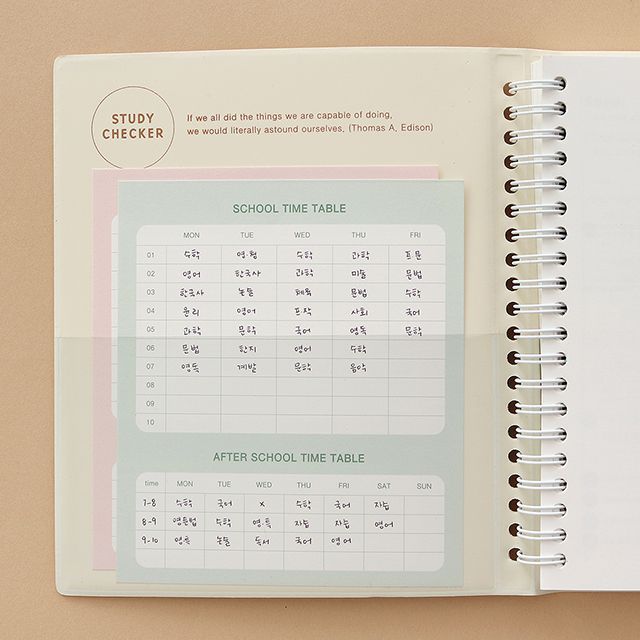 STUDY
CHECKER
If we all did the things we are capable of doing,
we would literally astound ourselves. (Thomas A. Edison)
SCHOOL TIME TABLE
MON TUE WED THU FRI
01 수학 영·형 수학 과학
02 영어 한국사 과학 미술 문법
03 한국사 논술 체육 문법 수학
04 윤리 영어 사회 국어
05 과학 문학 국어 영독 문학
06 문법 한지 영어 수학
07 영독 계발 문학 음악
08
09
10
AFTER SCHOOL TIME TABLE
time MON TUE WED THU FRI SAT SUN
7-8 수학 국어 x 수학 국어 자습
8-9 영문법 수학 영·독 자습 자습 영어
9-10 영·독 논술 독서 국어 영어